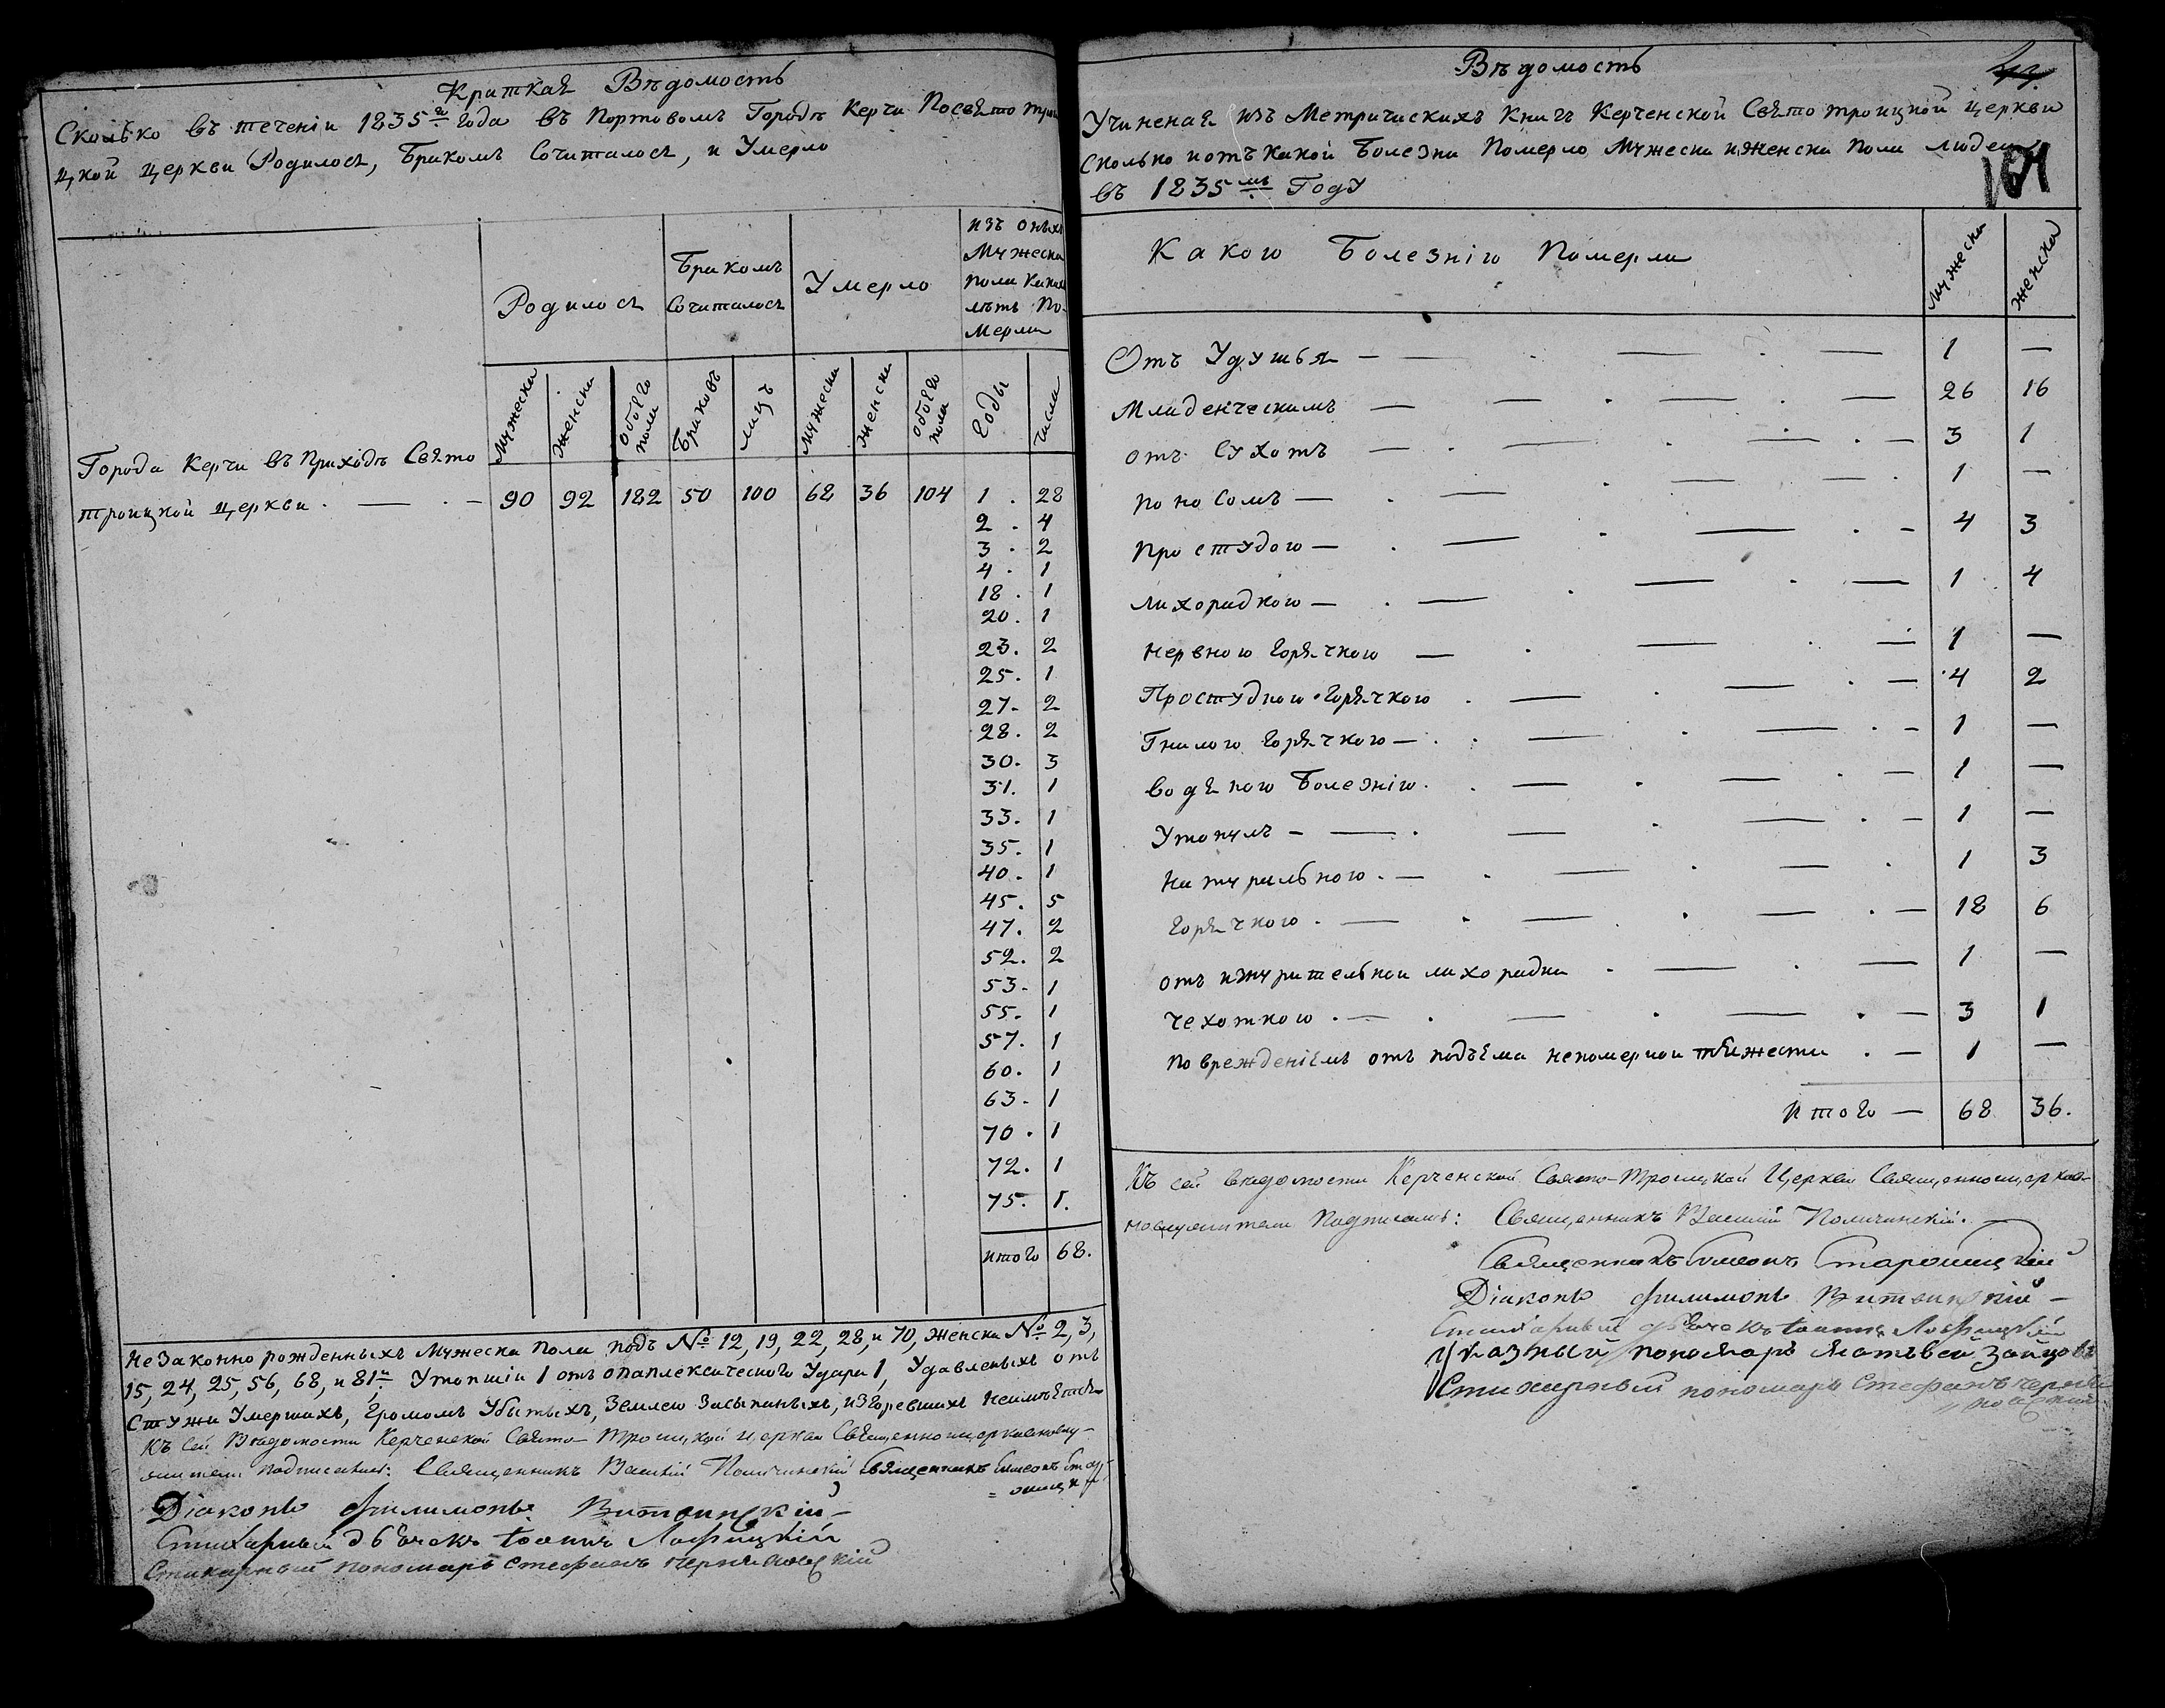 Краткая Вѣдомость
Сколько въ теченіи 1835го года въ Портовомъ Городѣ Керчи По Свято трои
цкой церкви Родилося, Бракомъ Сочиталося, и Умерло
Родилося
Бракомъ Сочиталося
Умерло
изъ оныхъ Мужеска пола Какихъ лѣтъ По-мерли
Мужеска Женска обоего пола Браковъ лицъ Мужеска Женска обоего пола Годы числа
Города Керчи въ Приходѣ Свято
троицкой церкви. — . — 90 92 182 50 100 68 36 104 1 . 28
2 . 4
3 . 2
4 . 1
18 . 1
20 . 1
23. 2
25. 1
27. 2
28. 2
30. 3
31. 1
33. 1
35. 1
40. 1
45. 5
47. 2
52. 2
53. 1
55. 1
57. 1
60. 1
63. 1
70. 1
72. 1
75. 1.
итого 68.
Незаконно рожденныхъ Мужеска пола подъ № 12, 19, 22, 28, и 70, Женска № 2, 3,
15, 24, 25, 56, 68, и 81й Утопшіи 1 отъ опаплексическаго Удара 1, Удавленыхъ отъ
Стужи Умершихъ, Громомъ Убитыхъ, Землею Засыпаныхъ, изгоревшихъ неимѣется
Къ Сей Вѣдомости Керченской Свято-Троицкой церкви Священноцерковнослу-
жители подписались: Священникъ Василій Священникъ Симеонъ Стар-
= ошицкій
Діаконъ Филимонъ Витвинскій —
Стихарный дьячекъ Іоаннъ
Стихарный пономарь Стефанъ Черняховскій
Вѣдомость
Учиненая изъ Метрическихъ Книгъ Керченской Свято троицкой церкви
Сколько и отъ какой Болезни Померло Мужеска и Женска пола людей
въ 1835мъ Году
101
Какою Болезнію Померли Мужеска Женска
Отъ Удушья — 1 —
Младенческимъ — 26 16
отъ Сухотъ — 3 1
поносомъ — 1 —
Простудою — 4 3
лихорадкою — 1 4
нервною горячкою — 1 —
Простудною горячкою . — 4 2
Гнилою горячкою — 1 —
водяною Болезнію . — 1 —
Утопулъ — 1 —
Натуральною . — 1 3
горячкою . — 18 6
отъ изнурительной лихорадки . — 1 —
Чехоткою . — 3 1
Поврежденіемъ отъ подъема непомерной тяжести . — 1 —
Итого — 68 36.
Къ сей вѣдомости Керченской Свято-Троицкой Церкви Священноцерков-
нослужители Подписались: Священникъ Василій
Священникъ Симеонъ Старошицкій
Діаконъ Филимонъ Витвинскій —
Стихарный дьячекъ Іоаннъ
Указный пономарь Матвей Зайцовъ
Стихарный пономарь Стефанъ Черня-
ховскій